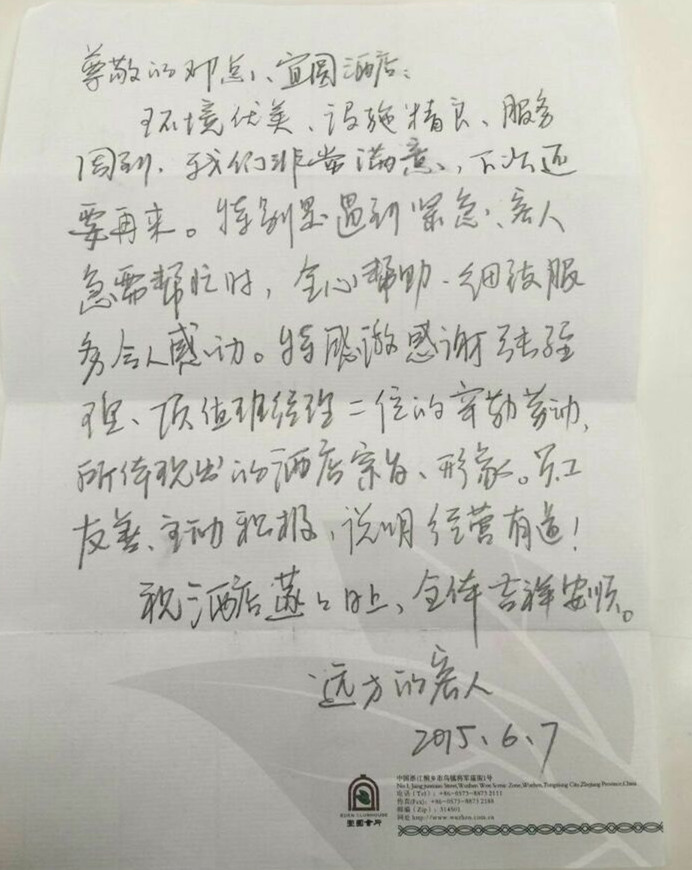 尊敬的 宜园酒店:
环境优美、设施精良、服务
周到，我们非常满意，下次还
要再来。特别是遇到紧急、客人
急需帮忙时，全心帮助、细致服
务令人感动。特感激感谢张经
理、项值班经理二位的辛勤劳动，
所体现出的酒店宗旨、形象。员工
友善、主动积极，说明经营有道!
祝酒店蒸蒸日上，全体吉祥安顺。
远方的客人
2015.6.7
中国浙江桐乡市乌镇
No.1, Wuzhen West Scenic Zone, Wuzhen, Tongxiang City, Zhejiang Province, China
电话（Tel）：+86-0573-8873 2111
传真(Fax)：+86-0573-8873
邮编（Zip）：314501
网址 http://www.wuzhen.com.cn
EDEN CLUBHOUSE